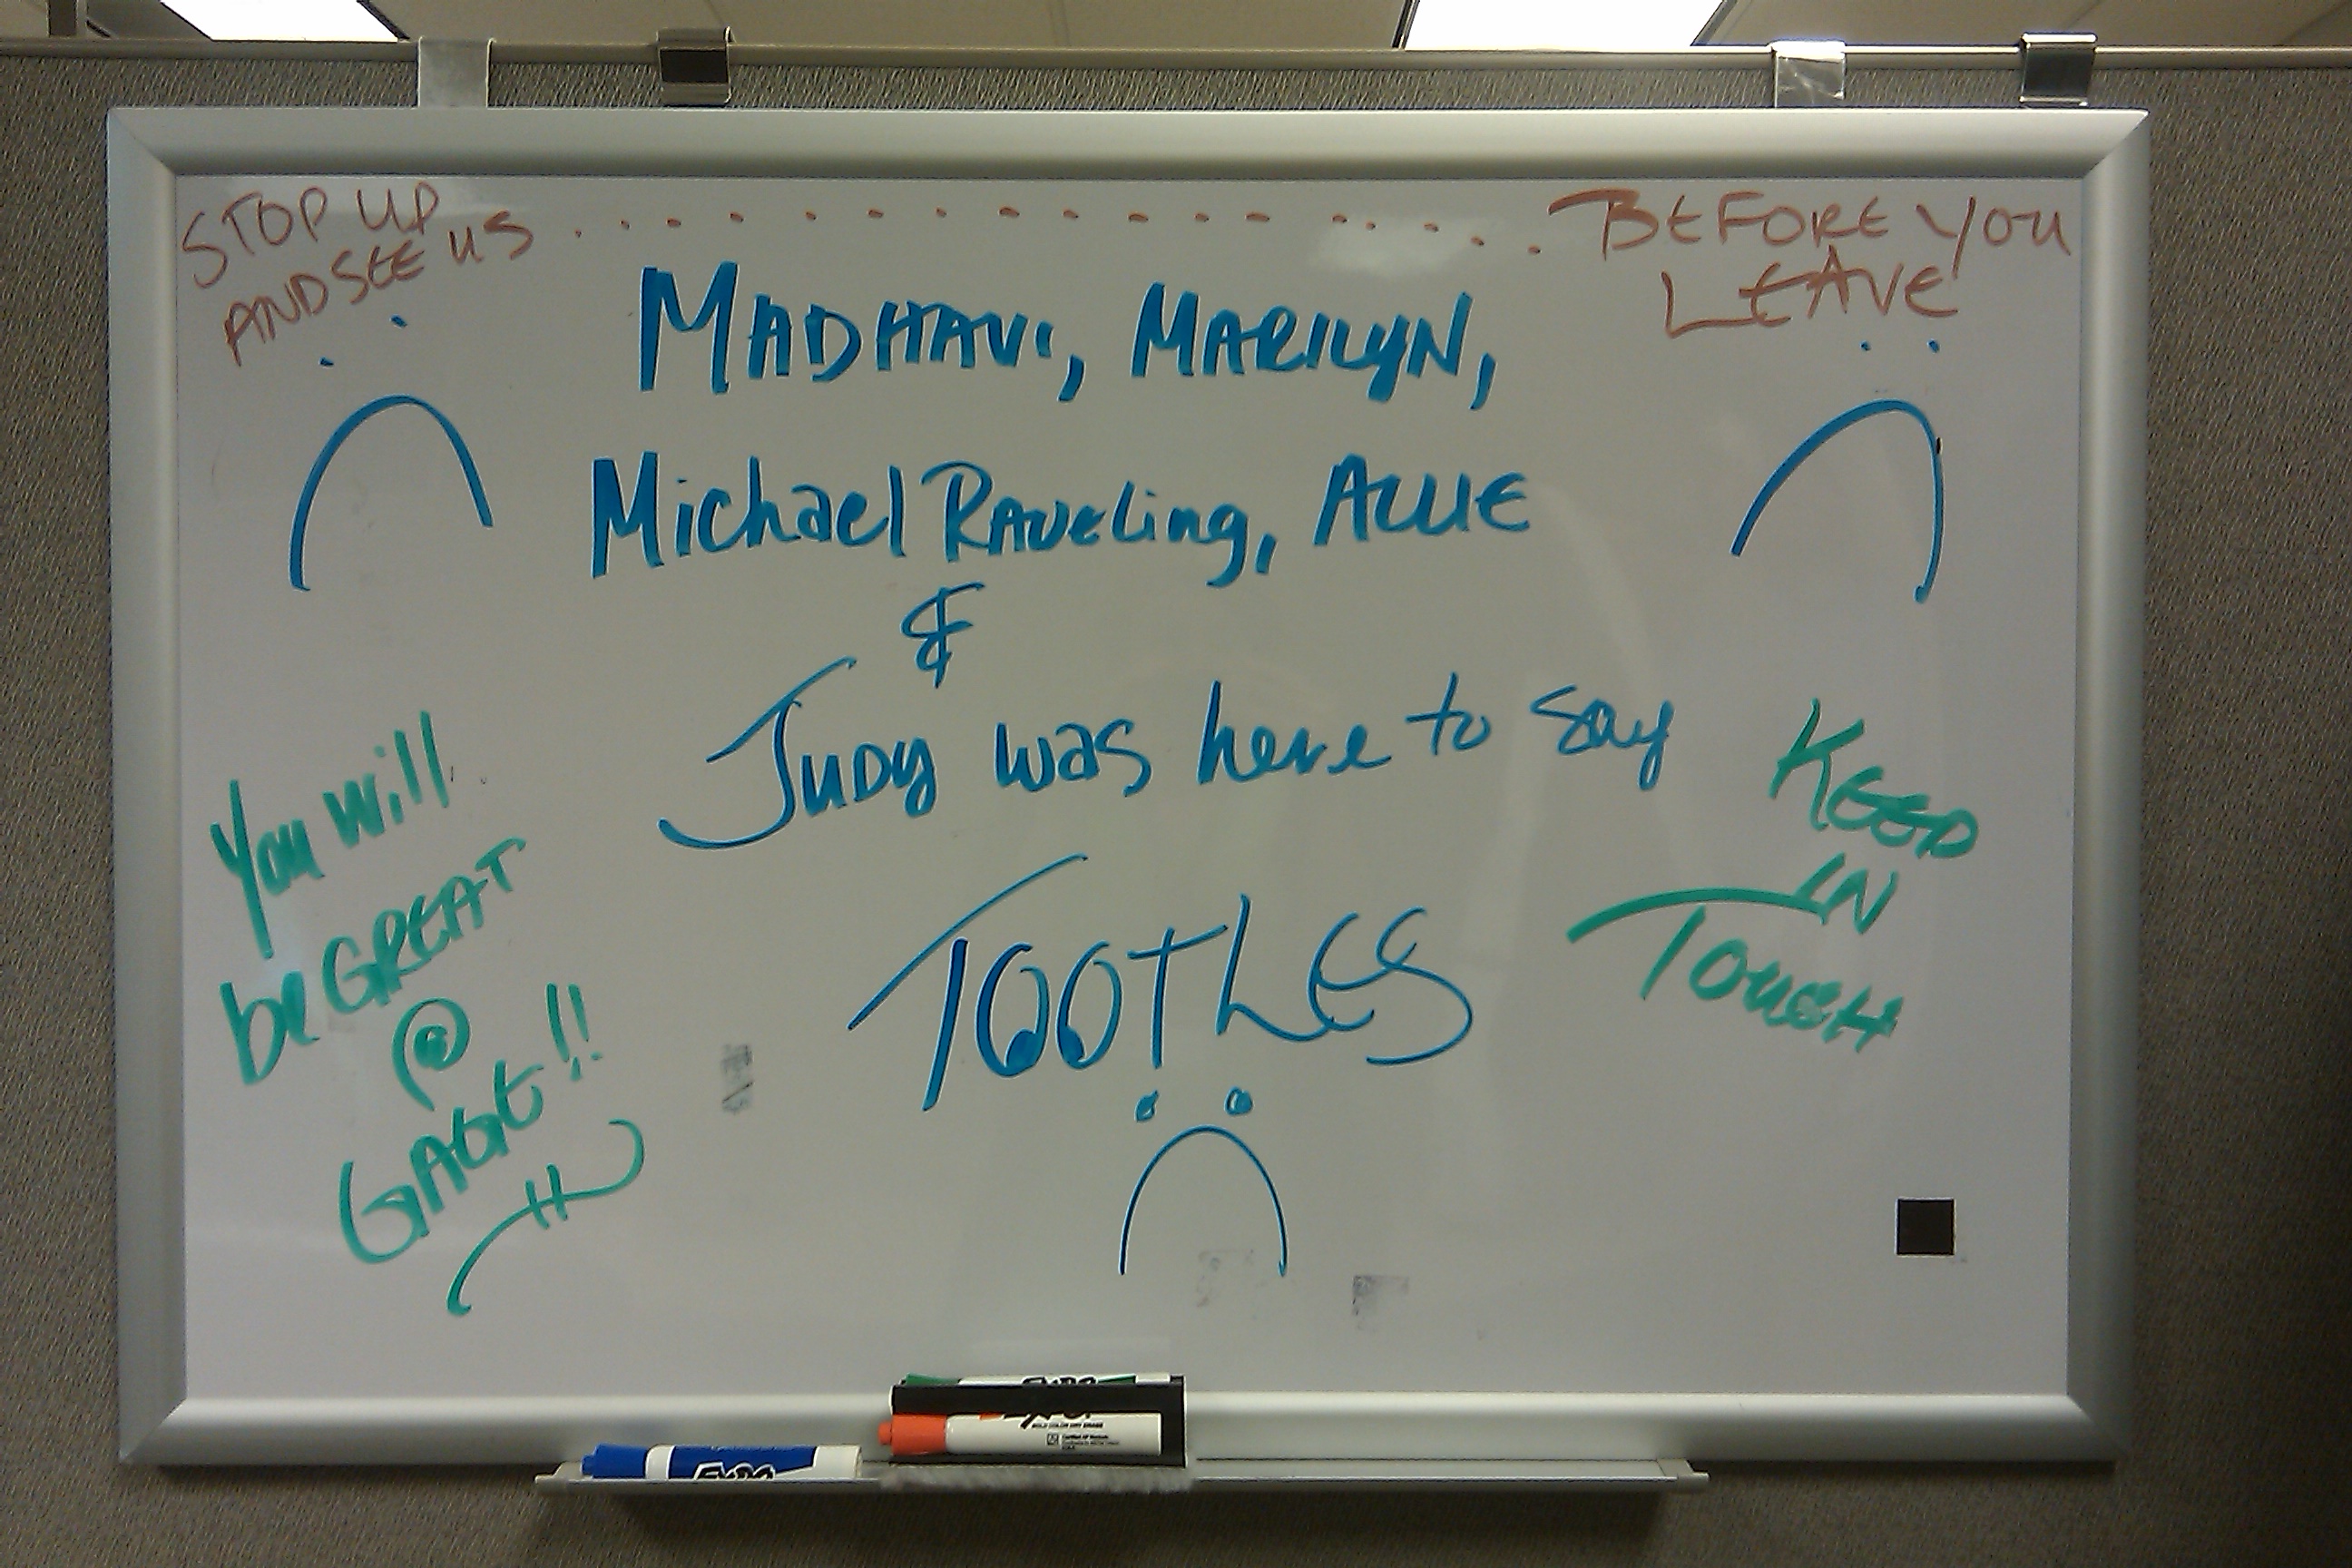 STOP UP
AND SEE US
BEFORE YOU
LEAVE
MADHAVI, MARILYN,
Michael RAVELING, ALLIE
&
JUDY was here to say
TOOTLES
You will
be GREAT
@
GAGE!!
KEEP
IN
TOUCH
EXPO
EXPO
EXPO